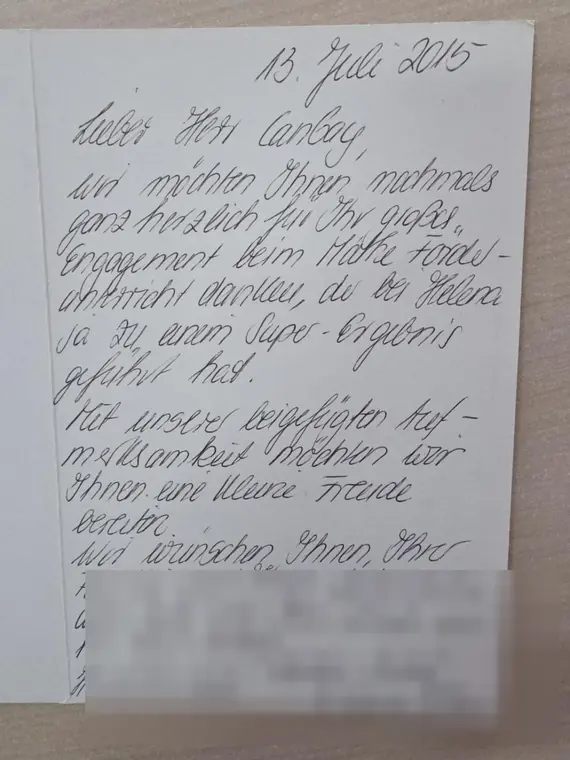 13. Juli 2015
Lieber Herr Canbay,
wir möchten Ihnen nochmals
ganz herzlich für Ihr großes
Engagement beim Mathe Förder-
unterricht danken, der bei Helena
ja zu einem Super-Ergebnis
geführt hat.
Mit unserer beigefügten Auf-
merksamkeit möchten wir
Ihnen eine kleine Freude
bereiten.
Wir wünschen Ihnen, Ihrer